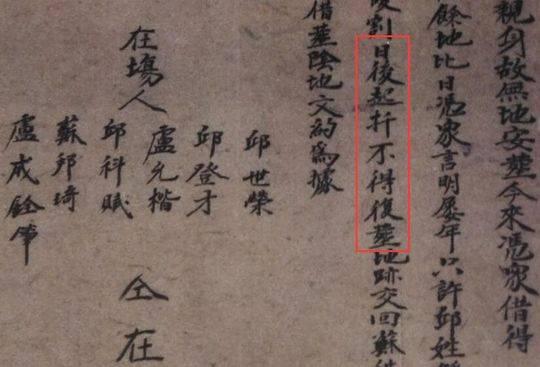 親身故無地安塟今來憑衆借得
餘地比日憑衆言明屡年只許邱姓
割日後起扦不得復塟地跡交回蘇
借塟陰地文約爲據
在塲人
邱世榮
邱登才
盧允楷
邱科賦
蘇邦琦
盧成銓筆
仝在